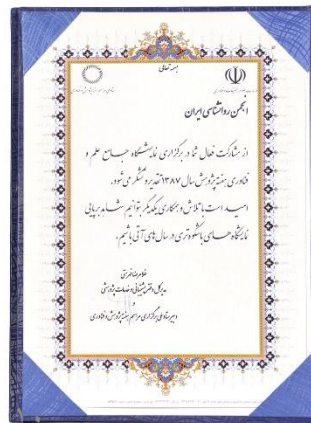 بسمه تعالی
انجمن روانشناسی ایران
از مشارکت فعال شما در برگزاری نمایشگاه جامع علم و
فناوری هفته پژوهش سال ۱۳۸۷ تقدیر و تشکر می شود.
امید است با تلاش و همکاری یکدیگر بتوانیم شاهد برپایی
نمایشگاه های باشکوه تری در سال های آتی باشیم.
مدیرکل دفتر پشتیبانی و خدمات پژوهشی
و
دبیر ستاد ملی برگزاری مراسم هفته پژوهش و فناوری